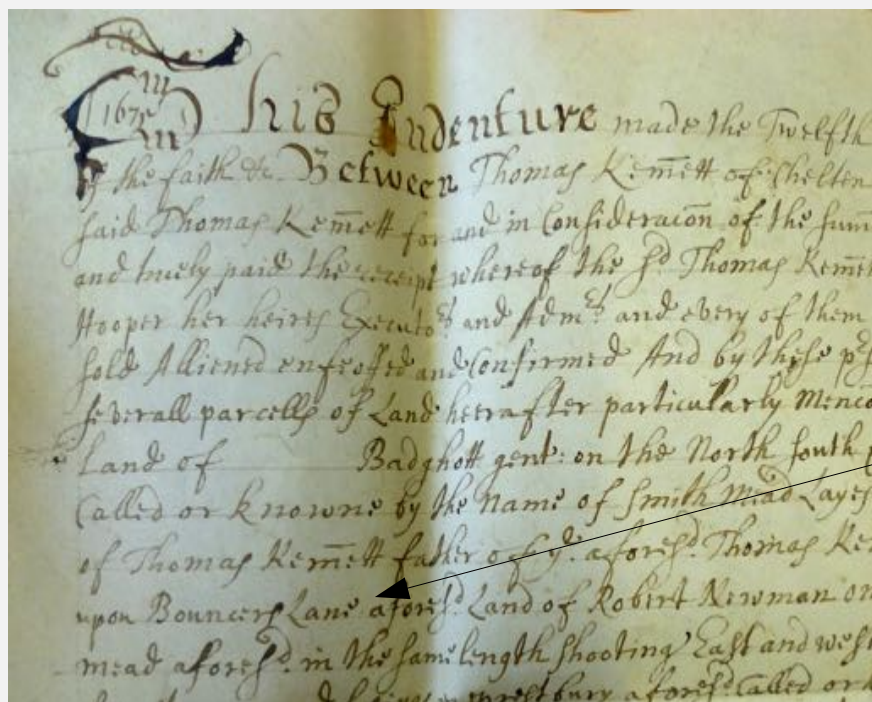 1675
This Indenture made the Twelfth
of the faith &c. Between Thomas Kem̄ett of Chelten
said Thomas Kem̄ett for and in Considerac̄on of the sum̄
and truely paid the receipt whereof the sd. Thomas Kem̄e
Hooper her heires Executors and Admrs and every of them
sold Alliened enfeoffed and Confirmed And by these
severall parcells of Land heerafter particularly Menco
Land of Badghott gent: on the North south
Called or knowne by the Name of Smith Mead Layes
of Thomas Kem̄ett father of ye. aforesd. Thomas Ke
upon Bouncers Lane aforesd. Land of Robert Newman on
mead aforesd. in the same length shooting East and west
aforesd Called or